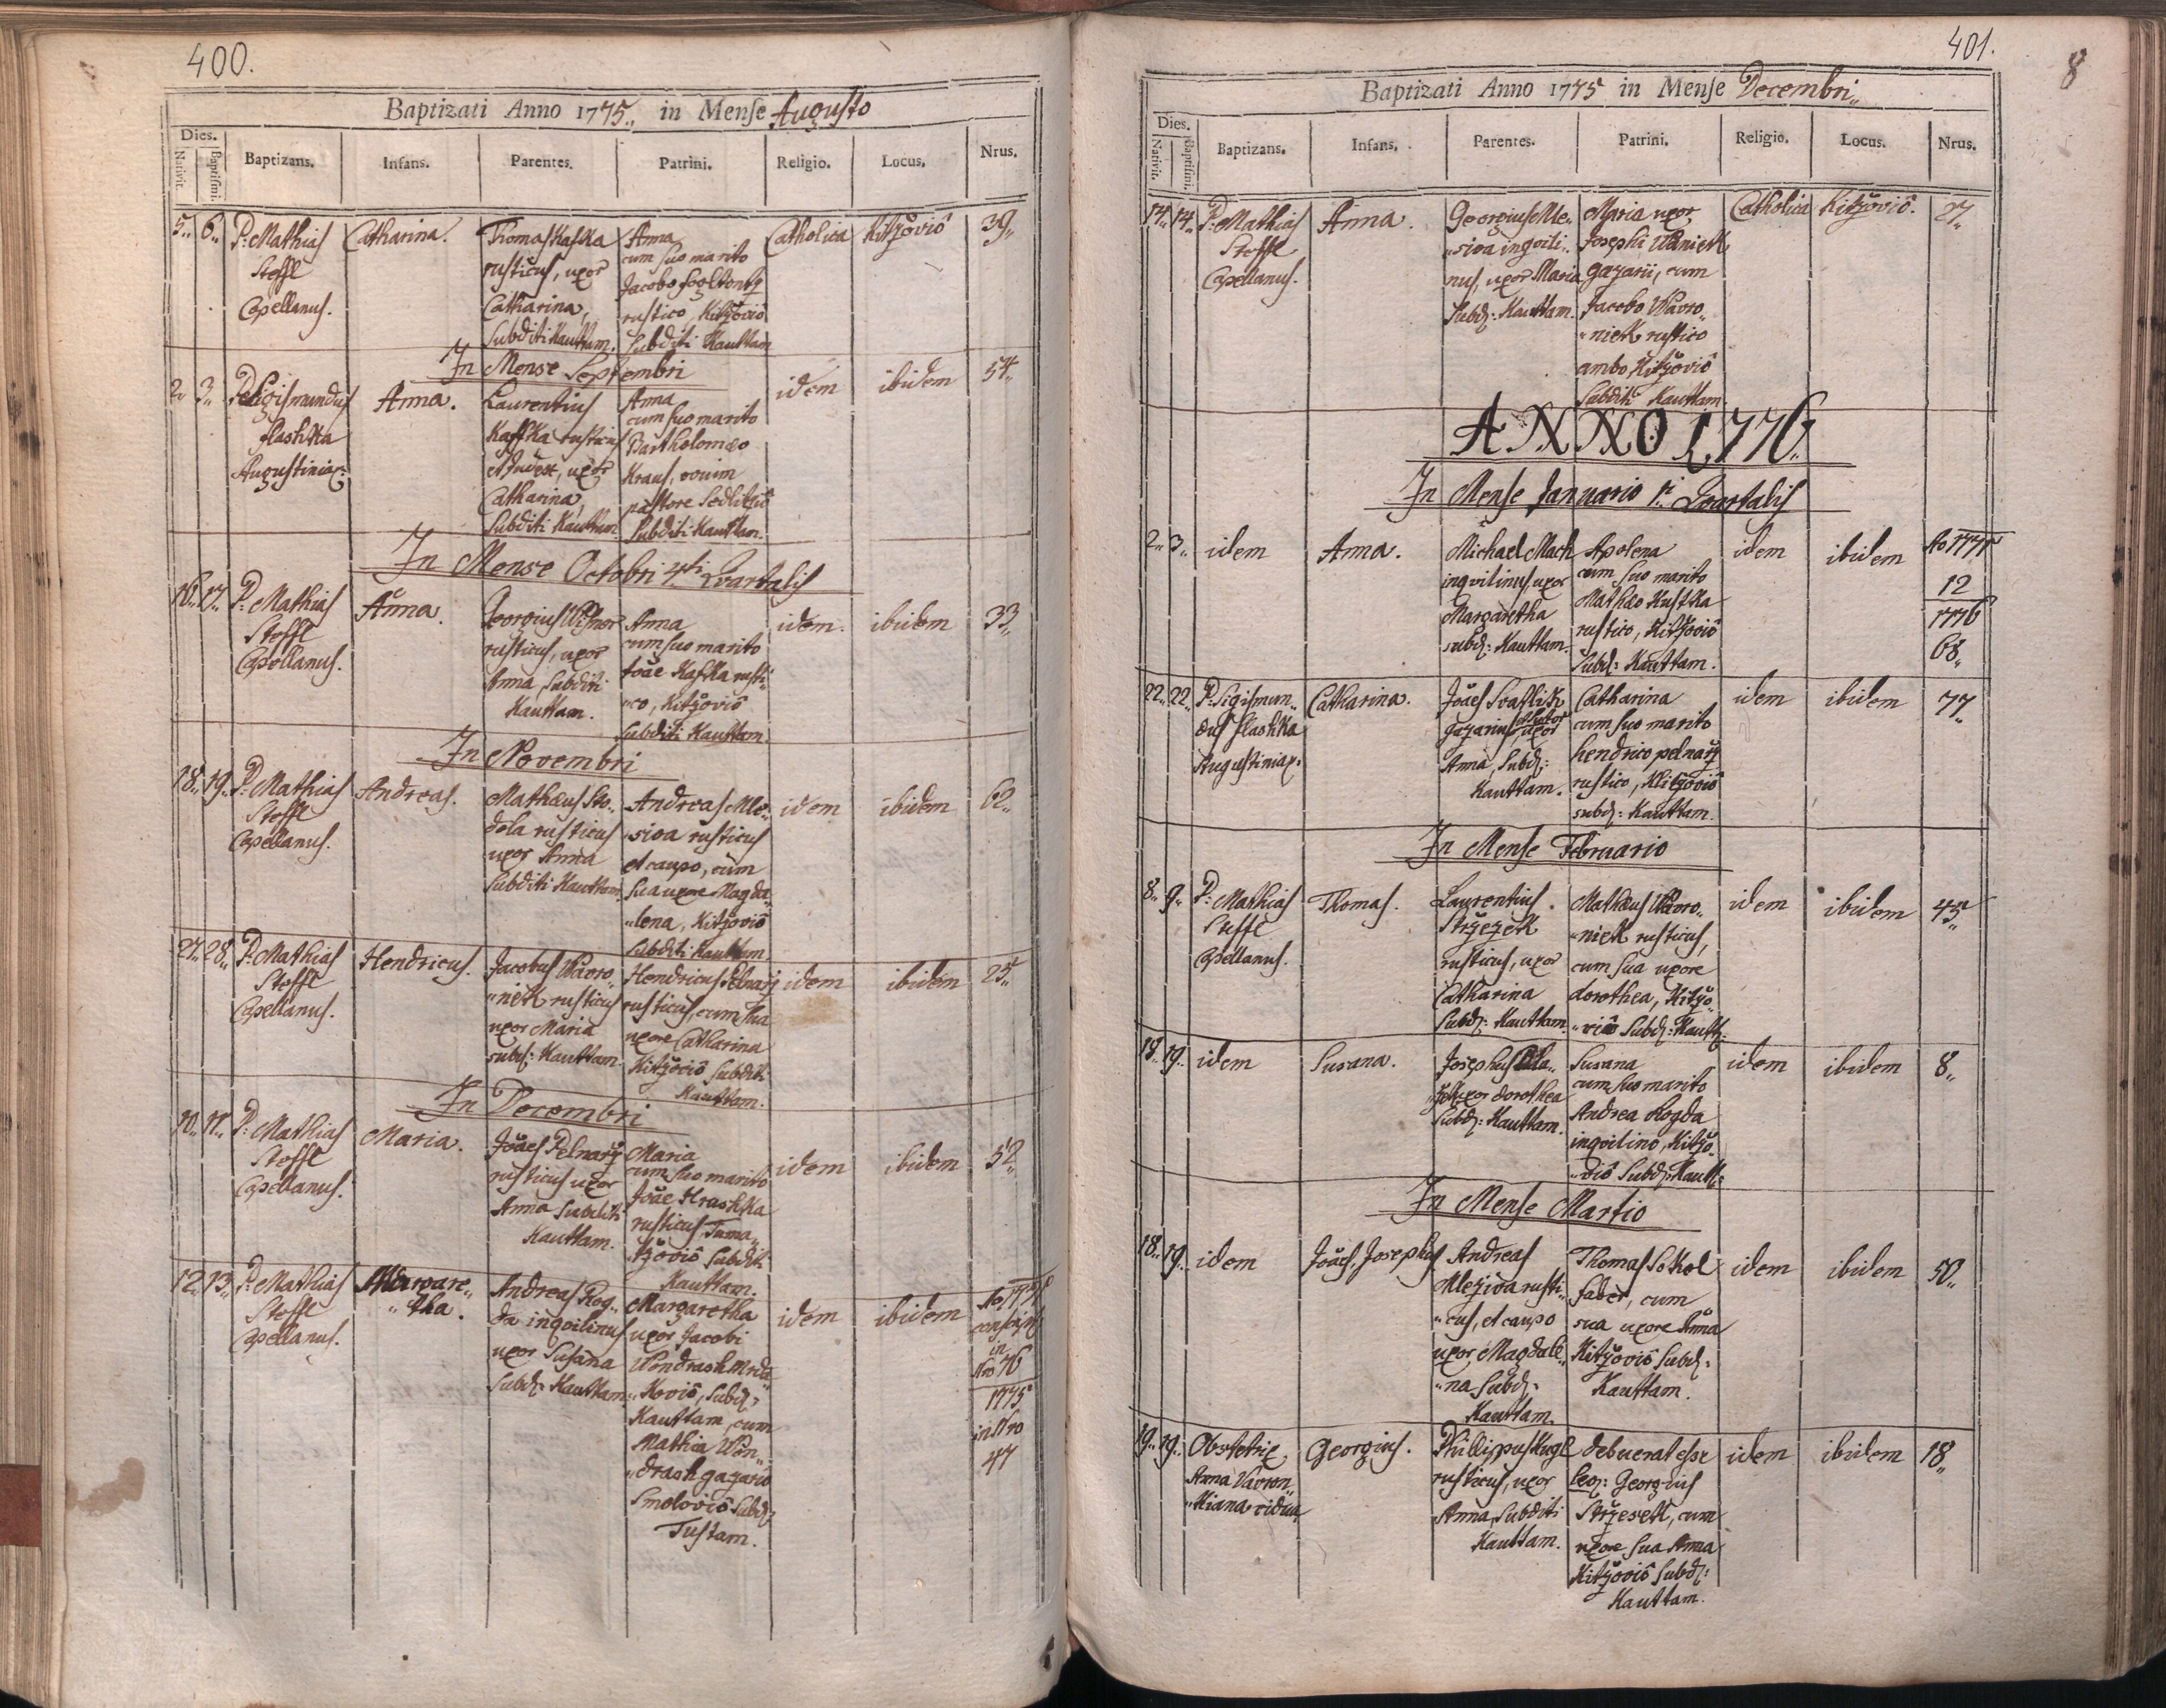 400.
Baptizati Anno 1775,, in Mense Augusto
Dies.
Nativit.
Baptismi.
Baptizans.
Infans.
Parentes.
Patrini.
Religio.
Locus.
Nrus.
5,, 6,,
P: Mathias
Stoffl
Capellanus.
Catharina.
Thomas Kafka
rusticus, uxor
Catharina,
Subditi Kauttam.
Anna
cum suo marito
Jacobo
rustico, Kitzovio
Subditi Kauttam
Catholica
Kitzovio
39,,
In Mense Septembri
2,, 3,,
P: Sigismundus
flashka
Augustinia:
Anna.
Laurentius
Kaffka rusticus
et Judex, uxor
Catharina,
Subditi Kauttam
Anna
cum suo marito
Bartholomæo
Kraus, ovium
pastore
Subditi Kauttam.
idem
ibidem
54,,
In Mense Octobri 4ti Quartalis
16,, 17,,
P: Mathias
Stoffl
Capellanus.
Anna.
Georgius Wisner
rusticus, uxor
Anna Subditi
Kauttam.
Anna
cum suo marito
Joãe Kafka rusti-
"co, Kitzovio
Subditi Kauttam.
idem.
ibidem
33,,
In Novembri
18,, 19,,
P: Mathias
Stoffl
Capellanus.
Andreas.
Mathæus Sto-
dola rusticus
uxor Anna
Subditi Kauttam
Andreas Mle-
"siva rusticus
et caupo, cum
sua uxore Magda-
"lena, Kitzovio
Subditi Kauttam
idem
ibidem
62,,
27,, 28,,
P: Mathias
Stoffl
Capellanus.
Hendricus.
Jacobus Wavro-
"niek rusticus
uxor Maria
subd: Kauttam.
Hendricus Pelnarz
rusticus, cum sua
uxore Catharina
Kitzovio Subditi
Kauttam.
idem
ibidem
25,,
In Decembri
10,, 11,,
P: Mathias
Stoffl
Capellanus.
Maria.
Joães Pelnarz
rusticus uxor
Anna Subditi
Kauttam.
Maria
cum suo marito
Joãe Hrashka
rusticus Tuma-
"tzovio Subditi
Kauttam.
idem
ibidem
52,,
12,, 13,,
P: Mathias
Stoffl
Capellanus.
Margare-
"tha.
Andreas Rog-
da inqvilinus
uxor Susana
Subd: Kauttam
Margaretha
uxor Jacobi
Wondrash
"Kovio, Subd:
Kauttam, cum
Mathia Won-
"drash gazario
Smolovio Subd:
Tustam.
idem
ibidem
in
Nro 76
1775
in Nro
47
401.
8
Baptizati Anno 1775 in Mense Decembri,,
Dies.
Nativit.
Baptismi.
Baptizans.
Infans.
Parentes.
Patrini.
Religio.
Locus.
Nrus.
14,, 14,,
P: Mathias
Stoffl
Capellanus.
Anna.
Georgius Mle-
"siva inqvili-
nus, uxor Maria
Subd: Kauttam.
Maria uxor
Josephi
gazarii, cum
Jacobo Wavro-
"niek rustico
ambo Kitzovio
Subditi Kauttam
Catholica
Kitzovio.
27,,
ANNO 1776,,
In Mense Januario 1i Quartalis
2,, 3,,
idem
Anna.
Michael Mach
inqvilinus, uxor
Margaretha
subd: Kauttam.
Apolena
cum suo marito
Mathæo Kustka
rustico, Kitzovio
Subd: Kauttam.
idem
ibidem
Ao 1775
12
1776
68,,
22,, 22,,
P: Sigismun-
dus flashka
Augustinia:
Catharina.
Joães Svatlik
gazarius et sutor uxor
Anna, Subd:
Kauttam.
Catharina
cum suo marito
hendrico pelnarz
rustico, Klitzovio
subd: Kauttam.
idem
ibidem
77,,
In Mense Februario
8,, 9,,
P: Mathias
Stoffl
Capellanus.
Thomas.
Laurentius
Strzezek
rusticus, uxor
Catharina
Subd: Kauttam.
Mathæus Wavro-
"niek rusticus,
cum sua uxore
dorothea, Kitzo-
"vio Subd: Kautt:
idem
ibidem
45,,
18,, 19,,
idem
Susana.
Josephus
uxor dorothea
Subd: Kauttam.
Susana
cum suo marito
Andrea Rogda
inqvilino, Kitzo-
"vio Subd: Kautt:
idem
ibidem
8,,
In Mense Martio
18,, 19,,
idem
Joães, Josephus
Andreas
Mleziva rusti-
"cus, et caupo
uxor, Magdale-
"na Subd:
Kauttam.
Thomas Sokol
faber, cum
sua uxore Anna
Kitzovio Subd:
Kauttam.
idem
ibidem
50,,
19,, 19,,
Obstetrix
Anna Vavron-
"kiana vidua
Georgius.
Phillippus Kugl
rusticus, uxor
Anna, Subditi
Kauttam.
debuerat esse
Georgius
Strzesek, cum
uxore sua Anna
Kitzovio Subd:
Kauttam.
idem
ibidem
18,,